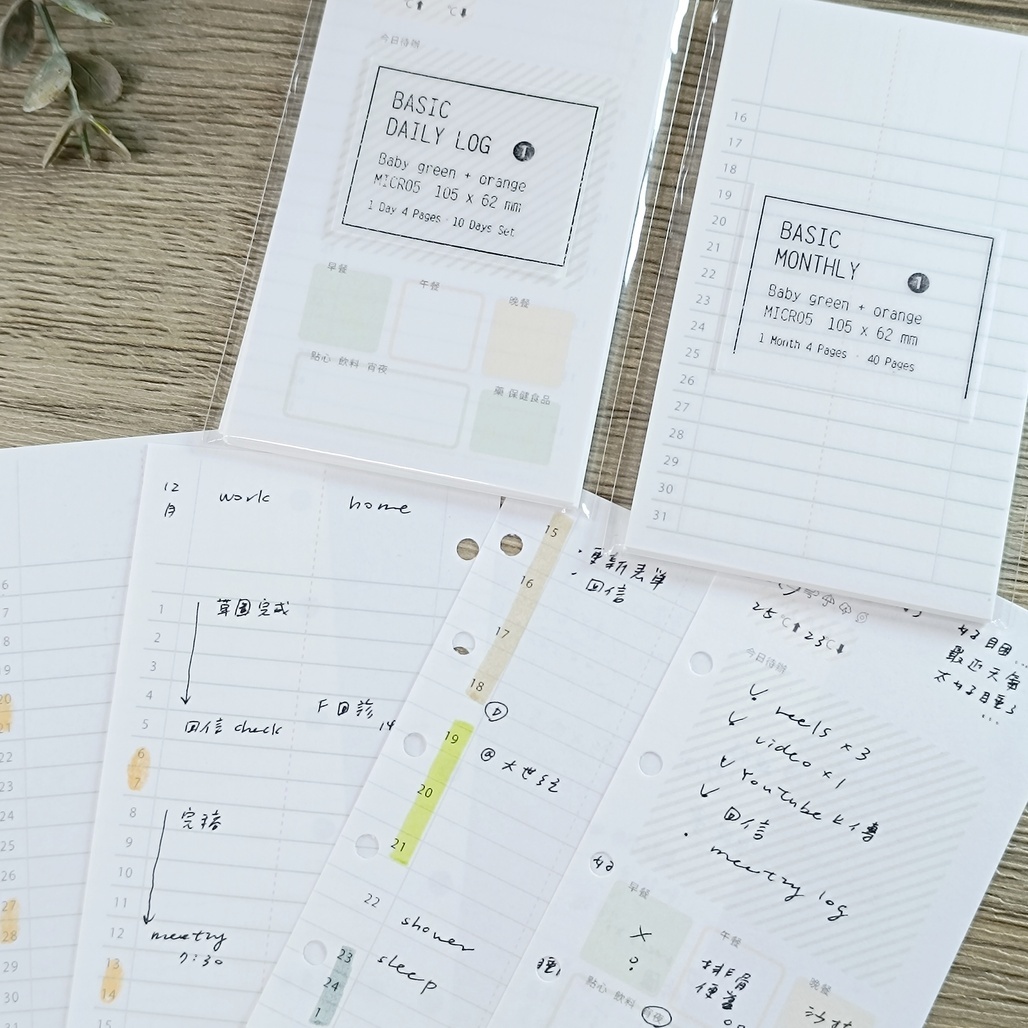 ℃⬆ ℃⬇
今日待辦
BASIC
DAILY LOG 1
Baby green + orange
MICRO5 105 x 62 mm
1 Day 4 Pages · 10 Days Set
早餐
午餐
晚餐
點心 飲料 宵夜
藥 保健食品
16
17
18
19
20
21
22
23
24
25
26
27
28
29
30
31
BASIC
MONTHLY 1
Baby green + orange
MICRO5 105 x 62 mm
1 Month 4 Pages · 40 Pages
6
7
8
9
20
21
22
23
24
25
26
27
28
29
30
31
12月 work home
1 草圖完成
2
3
4
5 回信 check
F回診
14
6
7
8 完稿
9
10
11
12 meeting
7:30
13
14
15
15
16
17
18
19
20
21
22
23
24
1
・更新表單
・回信
D
@大世纪
shower
sleep
25℃⬆23℃⬇
最近天氣
今日待辦
reels x3
video x1
YouTube 上傳
回信
・meeting log
早餐
×
?
午餐
排骨
便當
晚餐
點心 飲料 宵夜